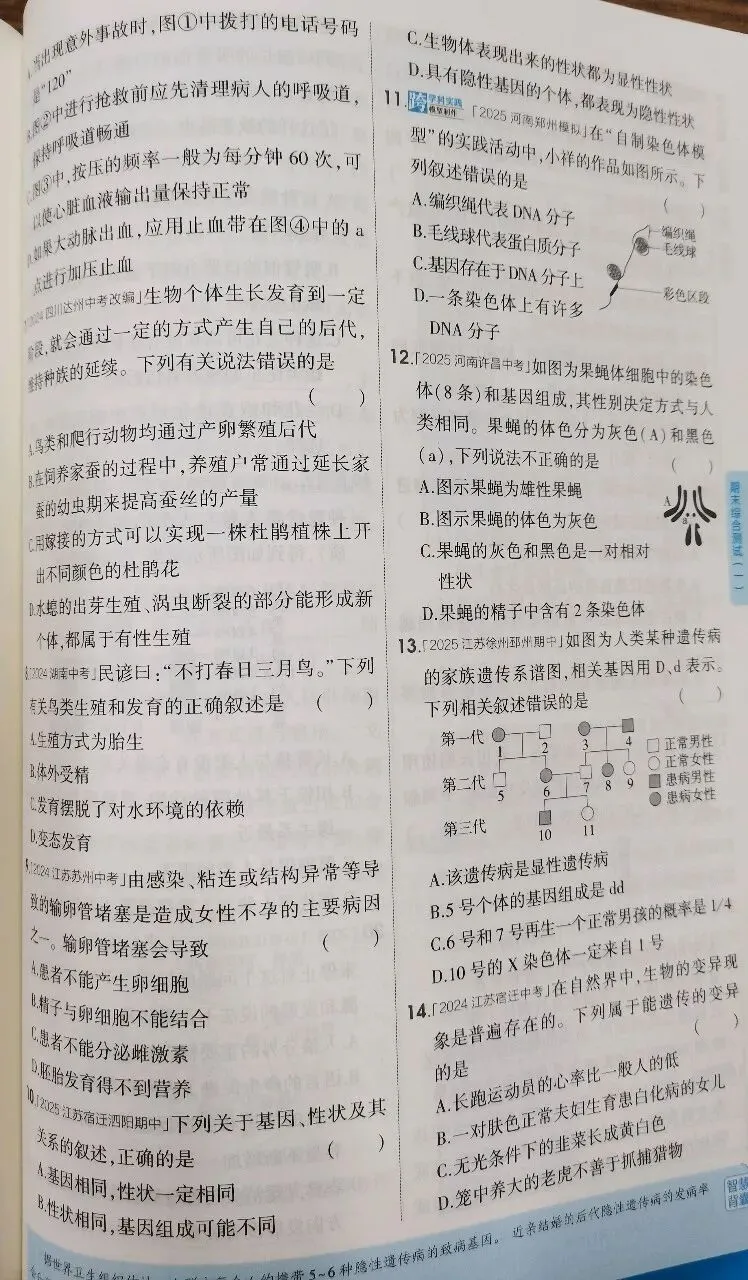 当出现意外事故时,图①中拨打的电话号码
是“120”
B.图②中进行抢救前应先清理病人的呼吸道,
保持呼吸道畅通
C.图③中,按压的频率一般为每分钟60次,可
以使心脏血液输出量保持正常
D.如果大动脉出血,应用止血带在图④中的a
点进行加压止血
「2024四川达州中考改编」生物个体生长发育到一定
阶段,就会通过一定的方式产生自己的后代,
维持种族的延续。下列有关说法错误的是
( )
A.鸟类和爬行动物均通过产卵繁殖后代
B.在饲养家蚕的过程中,养殖户常通过延长家
蚕的幼虫期来提高蚕丝的产量
C.用嫁接的方式可以实现一株杜鹃植株上开
出不同颜色的杜鹃花
D.水螅的出芽生殖、涡虫断裂的部分能形成新
个体,都属于有性生殖
8.「2024湖南中考」民谚曰:“不打春日三月鸟。”下列
有关鸟类生殖和发育的正确叙述是 ( )
A.生殖方式为胎生
B.体外受精
C.发育摆脱了对水环境的依赖
D.变态发育
9.「2024江苏苏州中考」由感染、粘连或结构异常等导
致的输卵管堵塞是造成女性不孕的主要病因
之一。输卵管堵塞会导致 ( )
A.患者不能产生卵细胞
B.精子与卵细胞不能结合
C.患者不能分泌雌激素
D.胚胎发育得不到营养
10.「2025江苏宿迁泗阳期中」下列关于基因、性状及其
关系的叙述,正确的是 ( )
A.基因相同,性状一定相同
B.性状相同,基因组成可能不同
C.生物体表现出来的性状都为显性性状
D.具有隐性基因的个体,都表现为隐性性状
11.跨学科实践 模型制作「2025河南郑州模拟」在“自制染色体模
型”的实践活动中,小祥的作品如图所示。下
列叙述错误的是 ( )
A.编织绳代表DNA分子
B.毛线球代表蛋白质分子
C.基因存在于DNA分子上
D.一条染色体上有许多
DNA分子
编织绳
毛线球
彩色区段
12.「2025河南许昌中考」如图为果蝇体细胞中的染色
体(8条)和基因组成,其性别决定方式与人
类相同。果蝇的体色分为灰色(A)和黑色
(a),下列说法不正确的是 ( )
A.图示果蝇为雄性果蝇
B.图示果蝇的体色为灰色
C.果蝇的灰色和黑色是一对相对
性状
D.果蝇的精子中含有2条染色体
A
a
13.「2025江苏徐州邳州期中」如图为人类某种遗传病
的家族遗传系谱图,相关基因用D、d表示。
下列相关叙述错误的是 ( )
第一代 1 2 3 4
第二代 5 6 7 8 9
第三代 10 11
正常男性
正常女性
患病男性
患病女性
A.该遗传病是显性遗传病
B.5号个体的基因组成是dd
C.6号和7号再生一个正常男孩的概率是1/4
D.10号的X染色体一定来自1号
14.「2024江苏宿迁中考」在自然界中,生物的变异现
象是普遍存在的。下列属于能遗传的变异
的是 ( )
A.长跑运动员的心率比一般人的低
B.一对肤色正常夫妇生育患白化病的女儿
C.无光条件下的韭菜长成黄白色
D.笼中养大的老虎不善于抓捕猎物
期末综合测试(一)
智慧
背囊
携带5~6种隐性遗传病的致病基因。近亲结婚的后代隐性遗传病的发病率